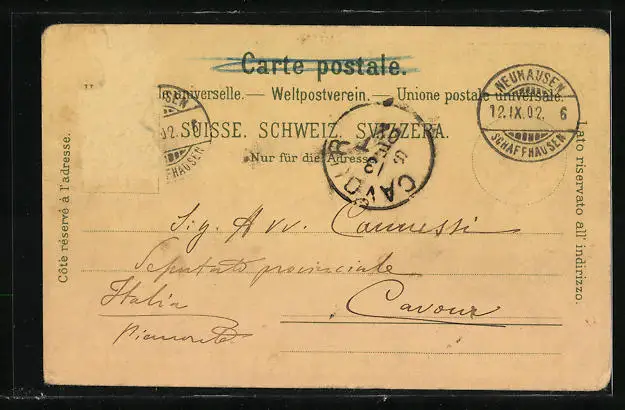 Carte postale.
is universelle. — Weltpostverein. — Unione postale universale.
SUISSE. SCHWEIZ. SVIZZERA.
Nur für die Adresse.
Côté réservé à l'adresse.
Lato riservato all' indirizzo.
NEUHAUSEN
12.IX.02. 6
SCHAFFHAUSEN
SEN
02. 6
SCHAFFHAUSEN
CAVOUR
13
Sig. Avv.
Deputato provinciale
Italia
Cavour
Piemonte